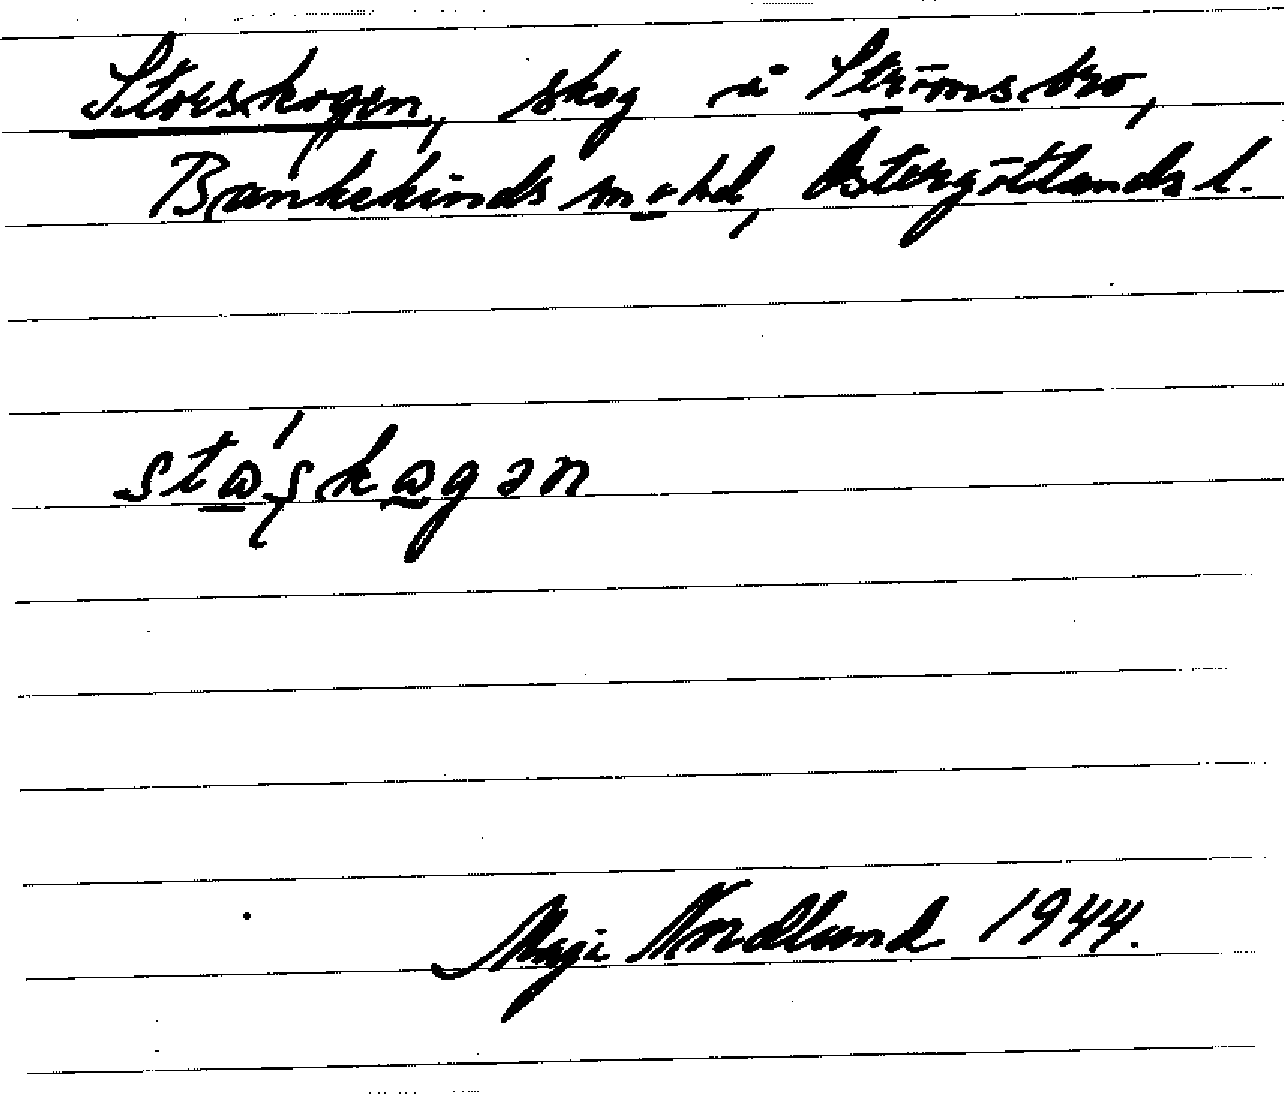 Storskogen, skog å Strömsbro,
Bankekinds sn o hd, Östergötlands l.
stɷ'ʂkɷgən
Maji Nordlund 1944.